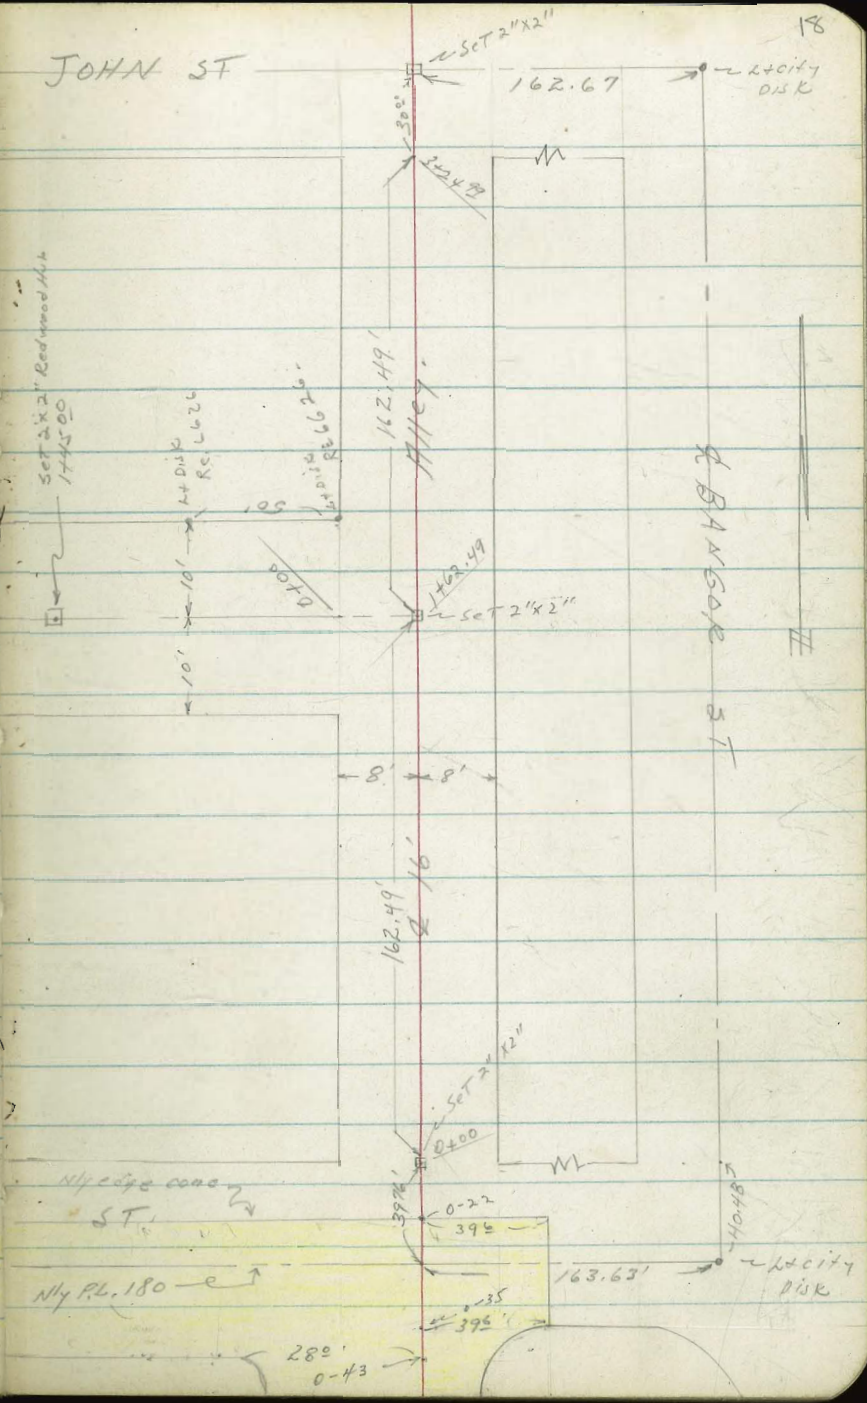 18
JOHN ST
SET 2"X2"
162.67
L+City
DISK
30⁰⁰
3+24.99
Set 2"x2" Redwood Hub
1+45.00
L+Disk
RE. 6626
L+Disk
RE 6626
50'
162.49'
Alley
℄ BANGOR ST
10'
10'
0+00
1+62.49
SET 2"X2"
8'
8'
162.49'
℄ 16'
SET 2"X2"
0+00
Nly edge conc
ST.
39.76'
0-22
39⁶
40.48
Nly P.L. 180
163.63'
L+City
Disk
0-35
39⁶'
28⁰'
0-43